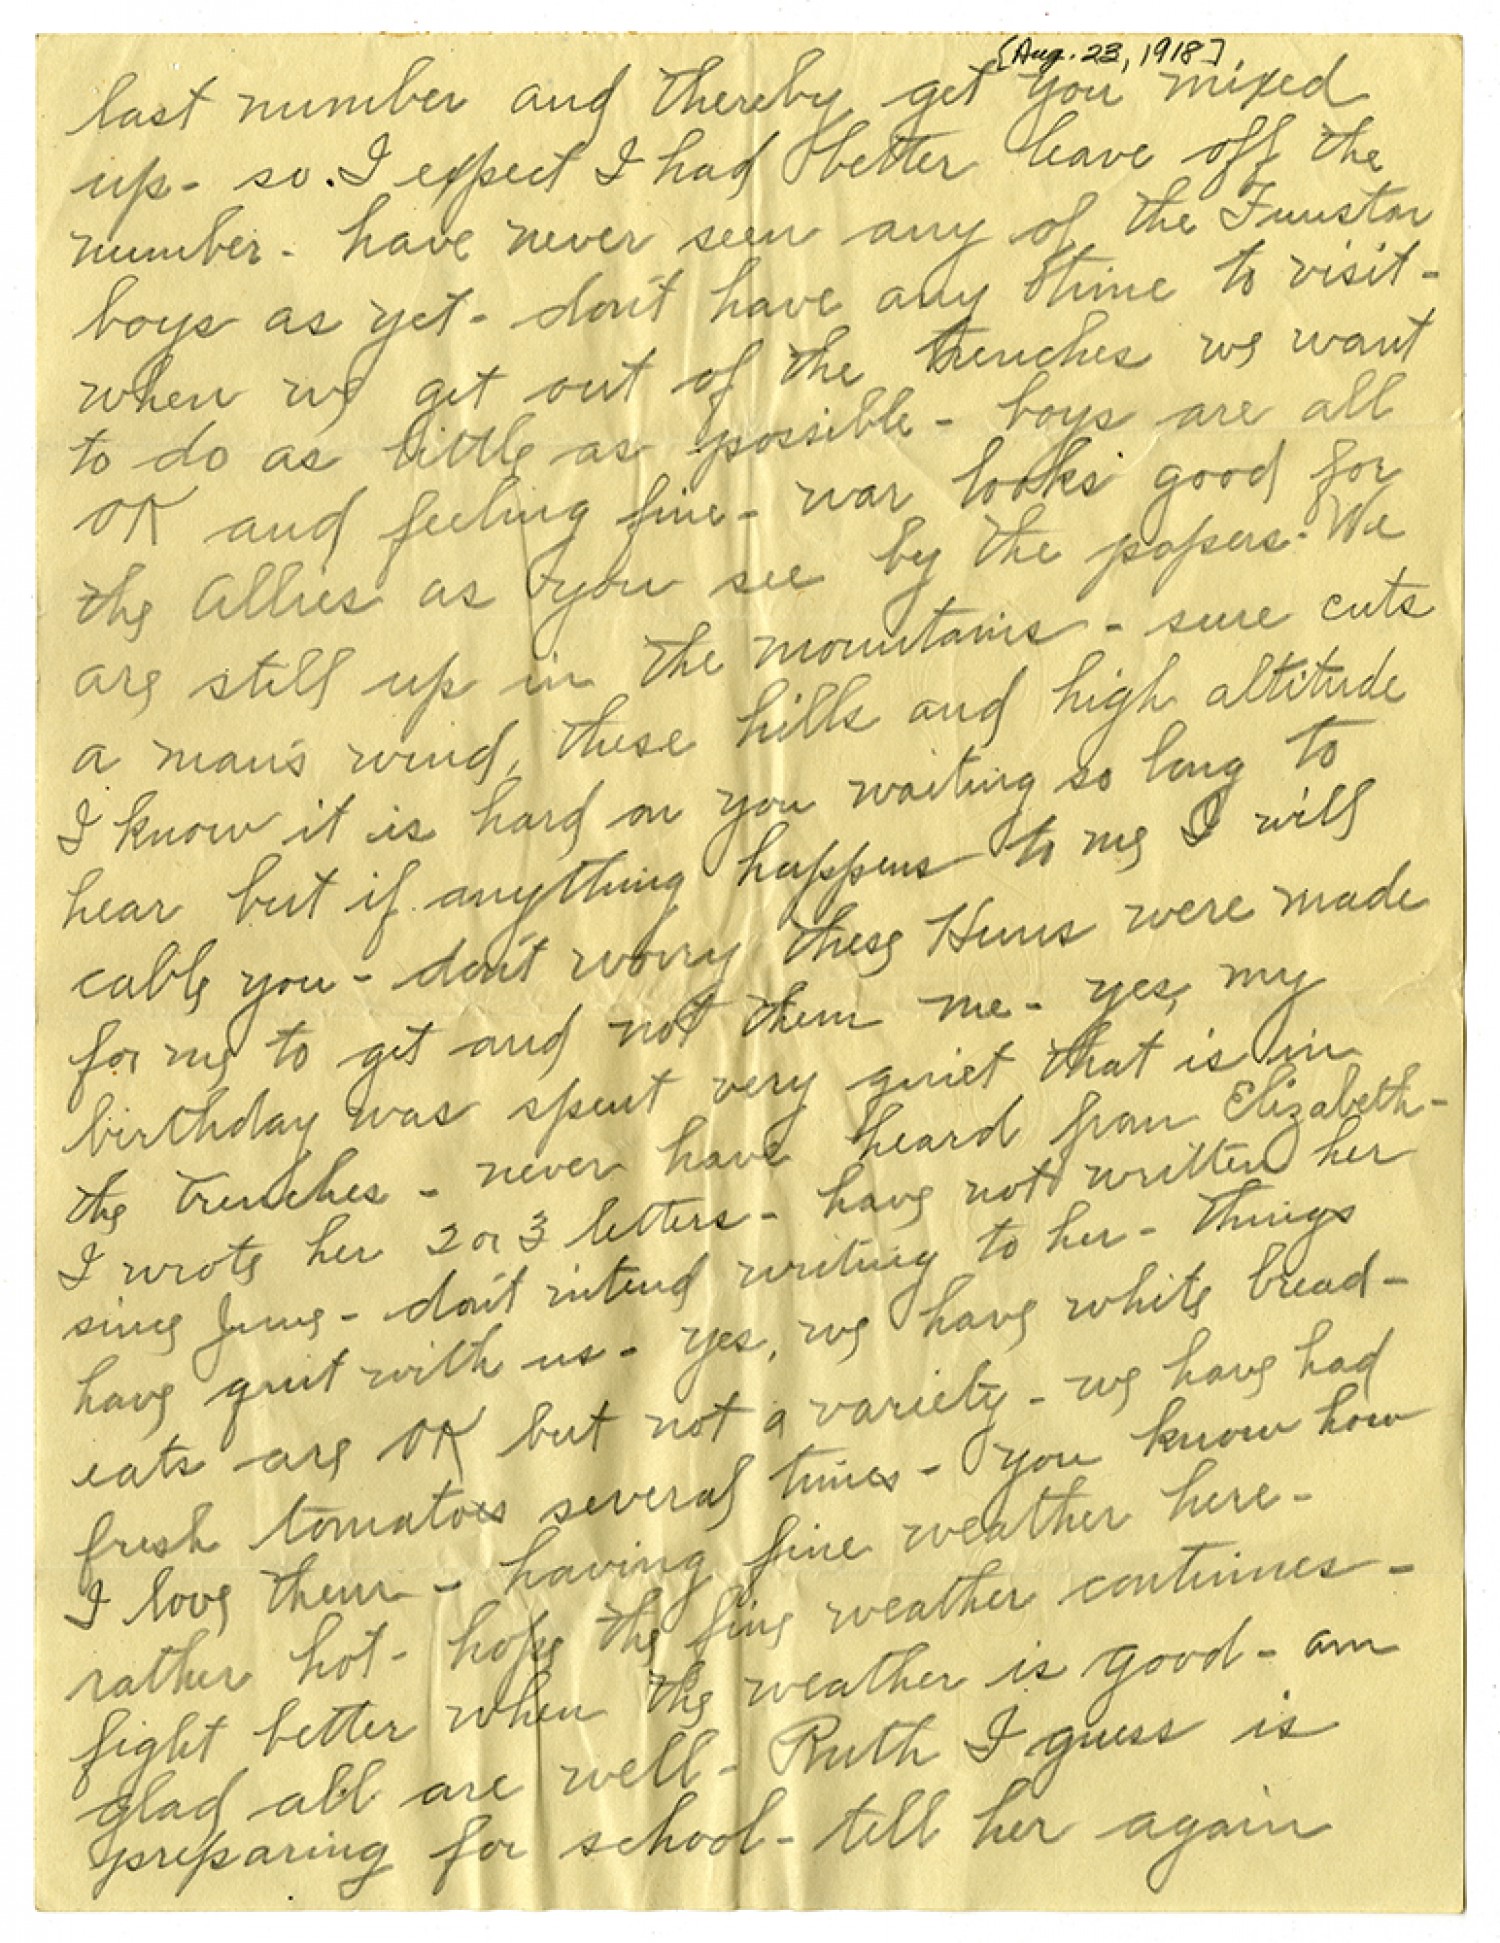 [Aug. 23, 1918]
last number and thereby get you mixed
up - so. I expect I had better leave off the
number - have never seen any of the Funston
boys as yet - don't have any time to visit -
when we get out of the trenches we want
to do as little as possible - boys are all
OK and feeling fine - war looks good for
the Allies as you see by the papers - We
are still up in the mountains - sure cuts
a man's wind, these hills and high altitude
I know it is hard on you waiting so long to
hear but if anything happens to me I will
cable you - don't worry these Huns were made
for me to get and not them me - yes, my
birthday was spent very quiet that is in
the trenches - never have heard from Elizabeth -
I wrote her 2 or 3 letters - have not written her
since June - don't intend writing to her - things
have quit with us - yes, we have white bread -
eats are OK but not a variety - we have had
fresh tomatoes several times - you know how
I love them - having fine weather here -
rather hot - hope the fine weather continues -
fight better when the weather is good - am
glad all are well - Ruth I guess is
preparing for school - tell her again